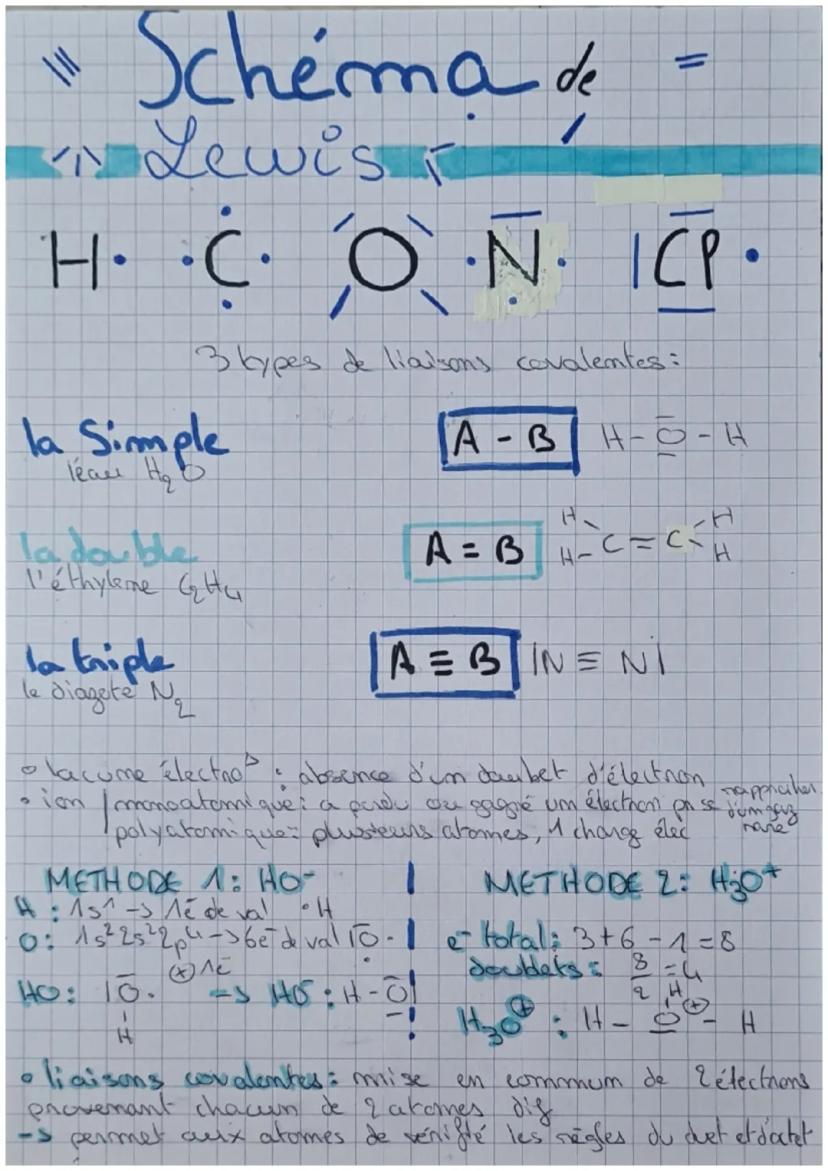 Schéma de
Lewis
H· ·C· O ·N· |CP·
3 types de liaisons covalentes:
la Simple A - B H - O - H
l'eau H2O
la double A = B H H C = C H H
l'éthylène C2H4
la triple A ≡ B |N ≡ N|
le diazote N2
• lacune électro : absence d'un doublet d'électron
• ion monoatomique: a perdu ou gagné um électron pr se rapprocher d'um gaz rare
polyatomique: plusieurs atomes, 1 charge élec
METHODE 1: HO- METHODE 2: H3O+
H : 1s1 -> 1é de val ·H
O: 1s2 2s2 2p4 -> 6é de val |O· e- total: 3+6-1=8
doublets: 8/2 = 4
HO: |O· + 1é => HO- : H-O| H3O+ : H - O+ - H
H H
• liaisons covalentes: mise en commum de 2 électrons
provenant chacun de 2 atomes dif
-> permet aux atomes de vérifié les règles du duet et d'octet